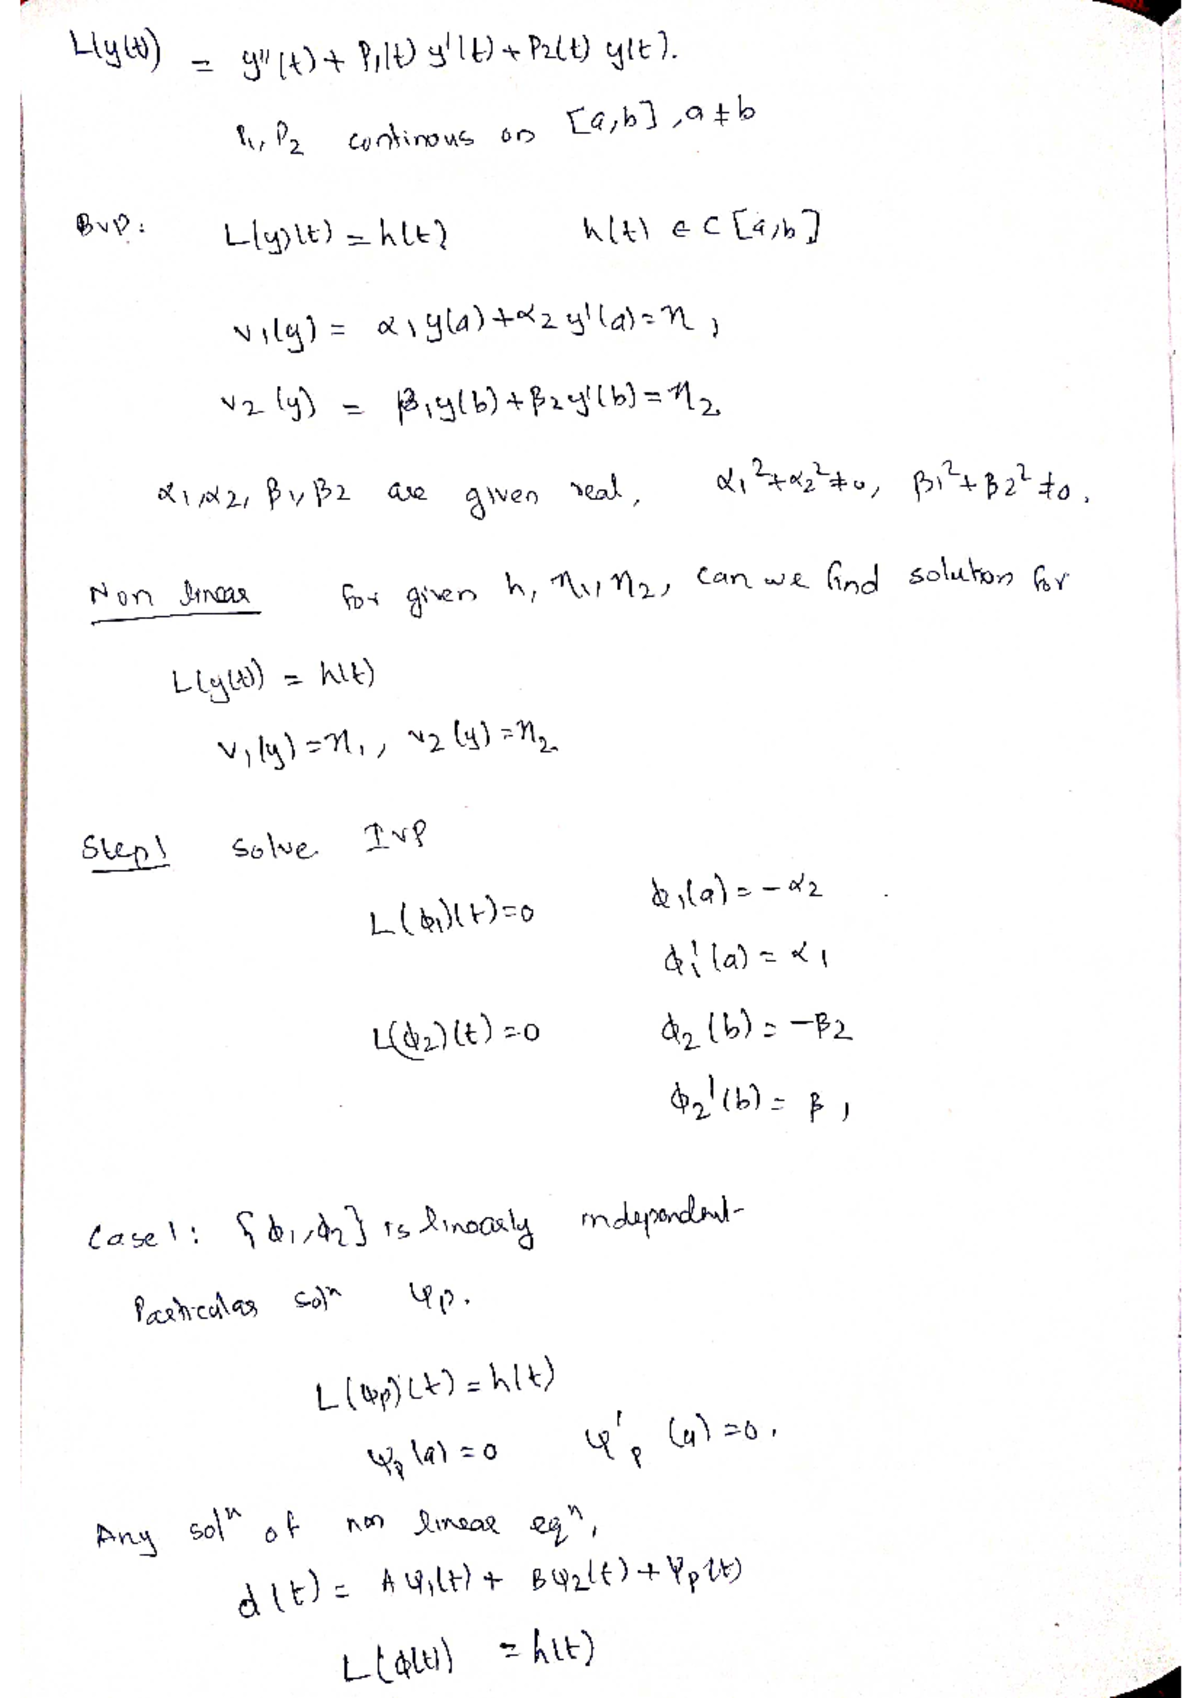 L(y(t)) = y''(t) + P₁(t) y'(t) + P₂(t) y(t).
P₁, P₂ continous on [a,b], a ≠ b
BVP: L(y)(t) = h(t) h(t) ∈ C [a,b]
v₁(y) = α₁ y(a) + α₂ y'(a) = η₁
v₂(y) = β₁y(b) + β₂y'(b) = η₂
α₁, α₂, β₁, β₂ are given real, α₁² + α₂² ≠ 0, β₁² + β₂² ≠ 0.
Non linear for given h, η₁, η₂, can we find solution for
L(y(t)) = h(t)
v₁(y) = η₁, v₂(y) = η₂
Step 1 Solve IVP
L(ϕ₁)(t) = 0 ϕ₁(a) = -α₂
ϕ₁'(a) = α₁
L(ϕ₂)(t) = 0 ϕ₂(b) = -β₂
ϕ₂'(b) = β₁
Case 1: {ϕ₁, ϕ₂} is linearly independent
Particular solⁿ ψp.
L(ψp)(t) = h(t)
ψp(a) = 0 ψ'p(a) = 0.
Any solⁿ of non linear eqⁿ,
d(t) = Aψ₁(t) + Bψ₂(t) + ψp(t)
L(ϕ(t)) = h(t)